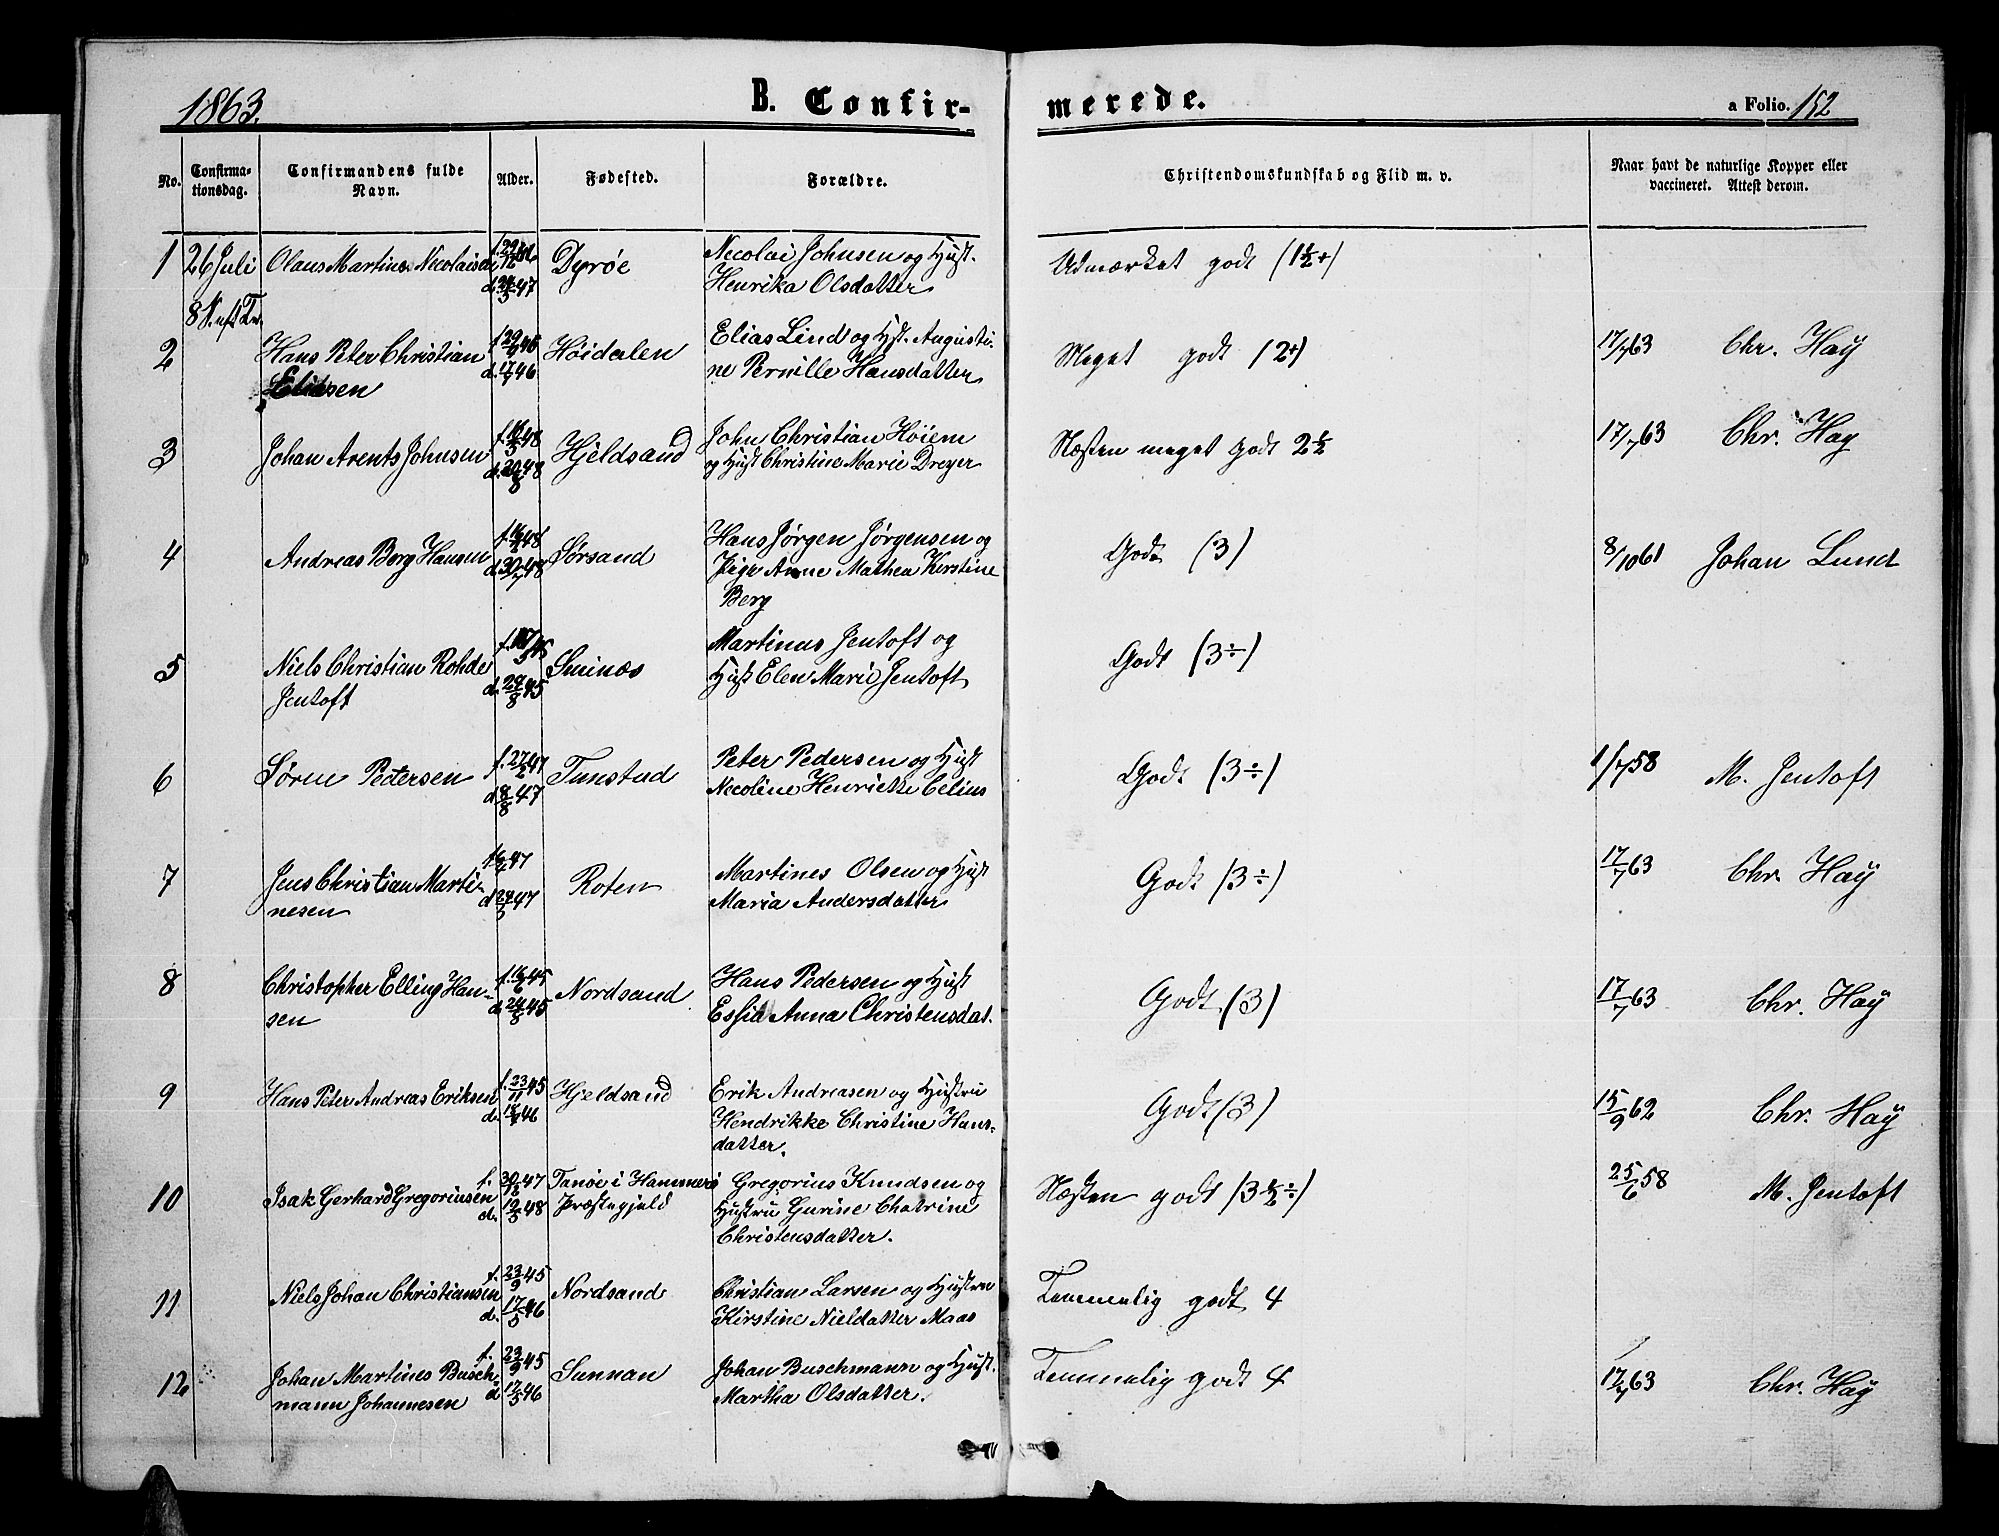 1863.
B. Confirmerede.
a Folio. 152
No.
Confirmationsdag.
Confirmandens fulde Navn.
Alder.
Fødested.
Forældre.
Christendomskundskab og Flid m. v.
Naar havt de naturlige Kopper eller vaccineret. Attest derom.
1 26 Juli Olaus Martinus Nicolaisen Dyrøe Nicolai Johnsen og Hust. Udmærket godt (1½+)
d. 47 Henrika Olsdatter
8 S. eft Tr.
2 Hans Peter Christian Høidalen Elias Lind og Hst. Augusti- Meget godt (2+) 17/7 63 Chr. Hay
Eliasen d. 46 ne Pernille Hansdatter
3 Johan Arents Johnsen 48 Hjeldsand John Christian Høiem Næsten meget godt 2½ 17/7 63 Chr. Hay
d. 20/8 48 og Hust Christine Marie Dreyer
4 Andreas Berg Hansen 48 Sørsand Hans Jørgen Jørgensen og Godt (3) 8/10 61 Johan Lund
d. 30/7 48 Pige Anne Mathea Kerstine
Berg
5 Niels Christian Rohde 45 Sminæs Martinus Jentoft og Godt (3÷)
Jentoft d. 45 Hust Elen Marie Jentoft
6 Søren Pedersen f. 27/2 47 Tunstad Peter Pedersen og Hust Godt (3÷) 1/7 58 M. Jentoft
d. 8/8 47 Nicoline Henriette Celius
7 Jens Christian Marti- 47 Roten Martines Olsen og Hust Godt (3÷) 17/7 63 Chr Hay
nesen d 47 Maria Andersdatter
8 Christopher Elling Han- f. 16/6 45 Nordsand Hans Pedersen og Hust Godt (3) 17/7 63 Chr. Hay
sen d. 24/8 45 Essia Anna Christensdat.
9 Hans Peter Andreas Eriksen f. 23/11 45 Hjeldsand Erik Andreasen og Hustru Godt (3) 15/9 62 Chr. Hay
d. 46 Hendrikke Christine Hans-
datter.
10 Isak Gerhard Gregoriusen f. 47 Tanøe i Hammerø Gregorius Knudsen og Næsten godt (3½÷) 25/6 58 M. Jentoft
d. 12/3 48 Præstegjeld Hustru Gurine Chatrine
Christensdatter.
11 Niels Johan Christiansen f. 23/9 45 Nordsand Christian Larsen og Hustru Temmelig godt 4
d. 17/5 46 Kirstine Nieldatter Maas
12 Johan Martines Busch- f. 23/9 45 Sunnan Johan Buschmann og Hust. Temmelig godt 4 17/7 63 Chr. Hay
mann Johannesen d 17/5 46 Martha Olsdatter.